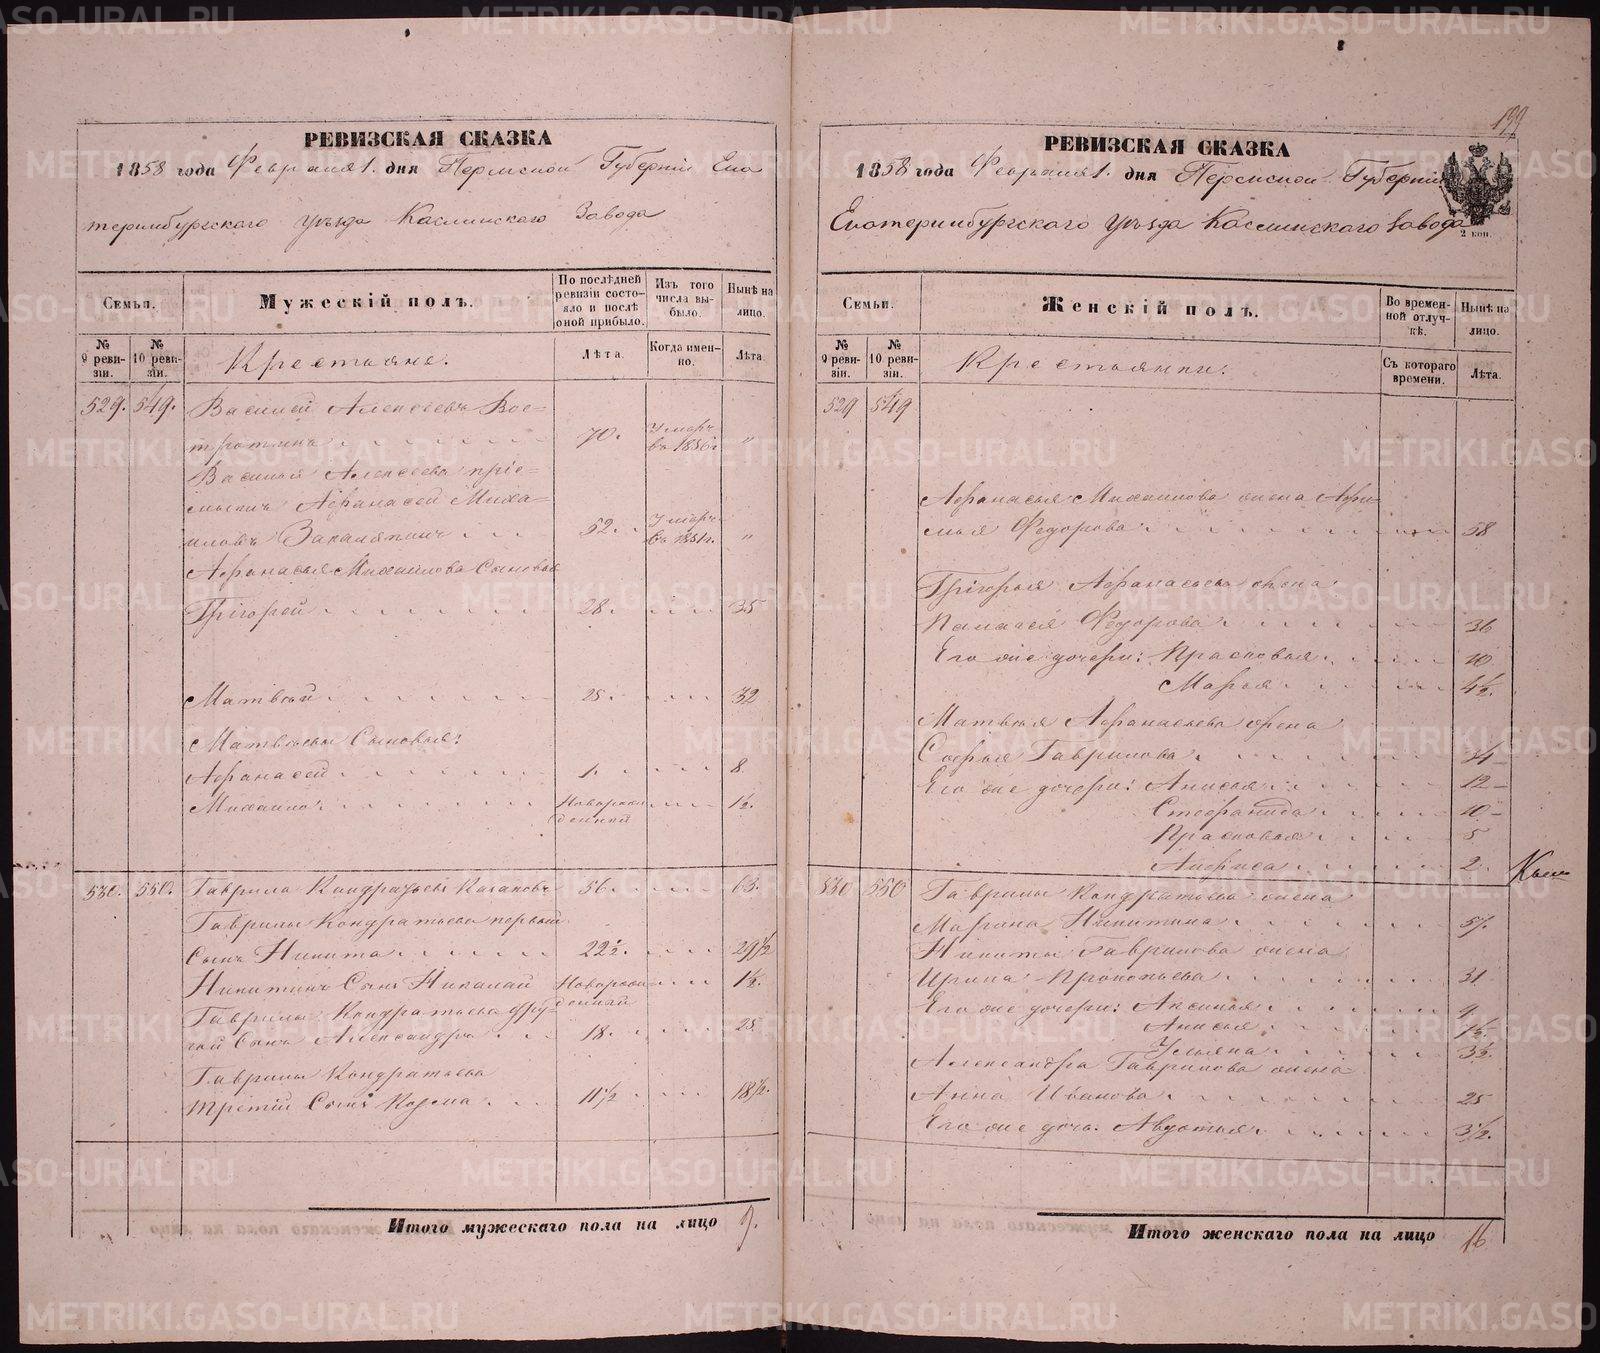 РЕВИЗСКАЯ СКАЗКА
1858 года Февраля 1. дня Пермской Губерніи Ека
теринбургскаго Уѣзда Каслинскаго Завода
Семьи.
Мужескій полъ.
По послѣдней ревизіи состояло и послѣ оной прибыло.
Изъ того числа выбыло.
Нынѣ на лицо.
№ 9 ревизіи.
№ 10 ревизіи.
Крестьяне.
Лѣта.
Когда именно.
Лѣта.
529. 549. Василей Алексѣевъ Вос=
тротинъ 70. Умеръ въ 1856 г. "
Василья Алексѣева пріе=
мышъ Афанасей Миха=
иловъ 52. Умеръ въ 1851 г. "
Афанасья Михаилова Сыновья
Григорей 28. 35
Матвѣй 25. 32
Матвѣевы Сыновья:
Афанасей 1. 8
Михаило: Новорожденный 1½.
530. 550. Гаврило Кондратьевъ 56. 63.
Гаврилы Кондратьева первый
Сынъ Никита 22½. 29½
Никитинъ Сынъ Николай Новорожденный 1½.
Гаврилы Кондратьева дру=
гой Сынъ Александръ 18. 25
Гаврилы Кондратьева
третій Сынъ Козма 11½ 18½.
Итого мужескаго пола на лицо 9.
199
РЕВИЗСКАЯ СКАЗКА
1858 года Февраля 1. дня Пермской Губерніи
Екатеринбургскаго Уѣзда Каслинскаго Завода
2 коп.
Семьи.
Женскій полъ.
Во временной отлучкѣ.
Нынѣ на лицо.
№ 9 ревизіи.
№ 10 ревизіи.
Крестьянки.
Съ котораго времени.
Лѣта.
529 549
Афанасья Михаилова жена
Федорова 58
Григорья Афанасьева жена
Палагея Федорова 36
Его же дочери: Прасковья 10
Марья 4½.
Матвѣя Афанасьева жена
Софья Гаврилова 34
Его же дочери: Анисья 12
Стефанида 10
Прасковья 5
Анфиса 2.
530 550 Гаврилы Кондратьева жена
Марина Никитина 57.
Никиты Гаврилова жена
Ирина Прокопьева 31
Его же дочери: Аксинья 9
Анисья
Ульяна 3½.
Александра Гаврилова жена
Анна Иванова 25
Его же дочь: Авдотья 3½.
Итого женскаго пола на лицо 16
METRIKI.GASO-URAL.RU